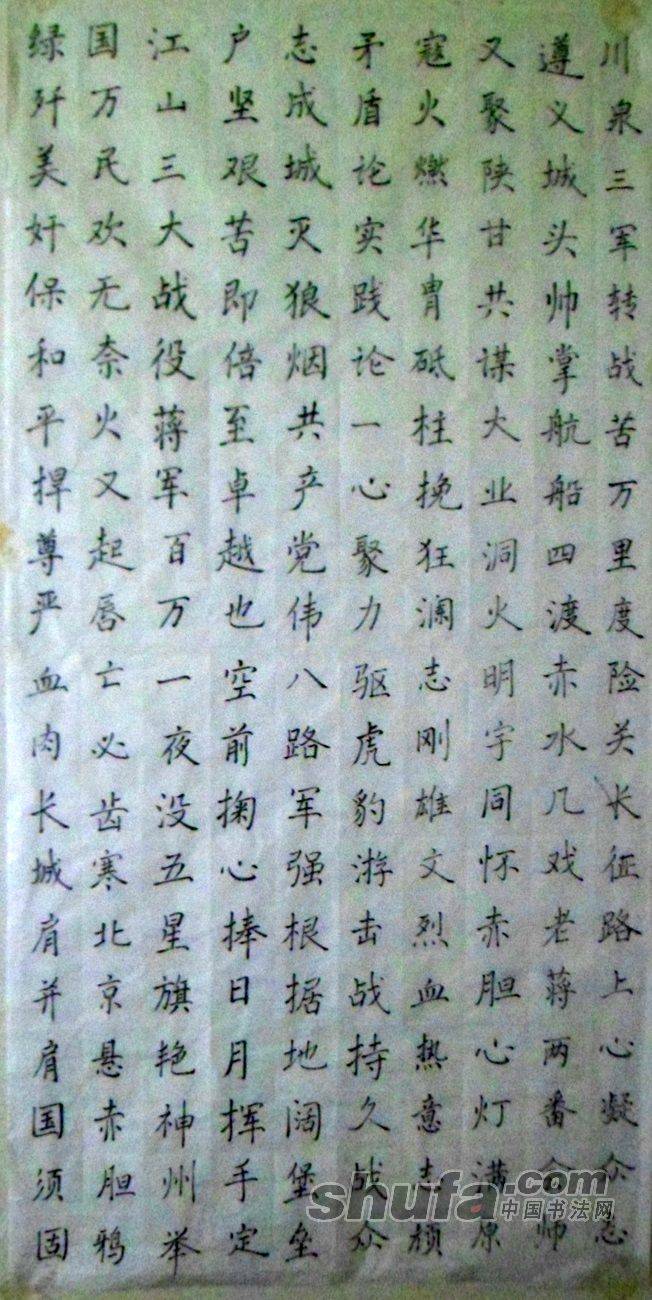 川泉三军转战苦万里度险关长征路上心凝众志
遵义城头帅掌航船四渡赤水几戏老蒋两番会帅
又聚陕甘共谋大业洞火明宇同怀赤胆心灯满原
寇火燃华胄砥柱挽狂澜志刚雄文烈血热意志顽
矛盾论实践论一心聚力驱虎豹游击战持久战众
志成城灭狼烟共产党伟八路军强根据地阔堡垒
户坚艰苦即倍至卓越也空前掬心捧日月挥手定
江山三大战役蒋军百万一夜没五星旗艳神州举
国万民欢无奈火又起唇亡必齿寒北京悬赤胆鸦
绿歼美奸保和平捍尊严血肉长城肩并肩国须固
shufa.com
中国书法网